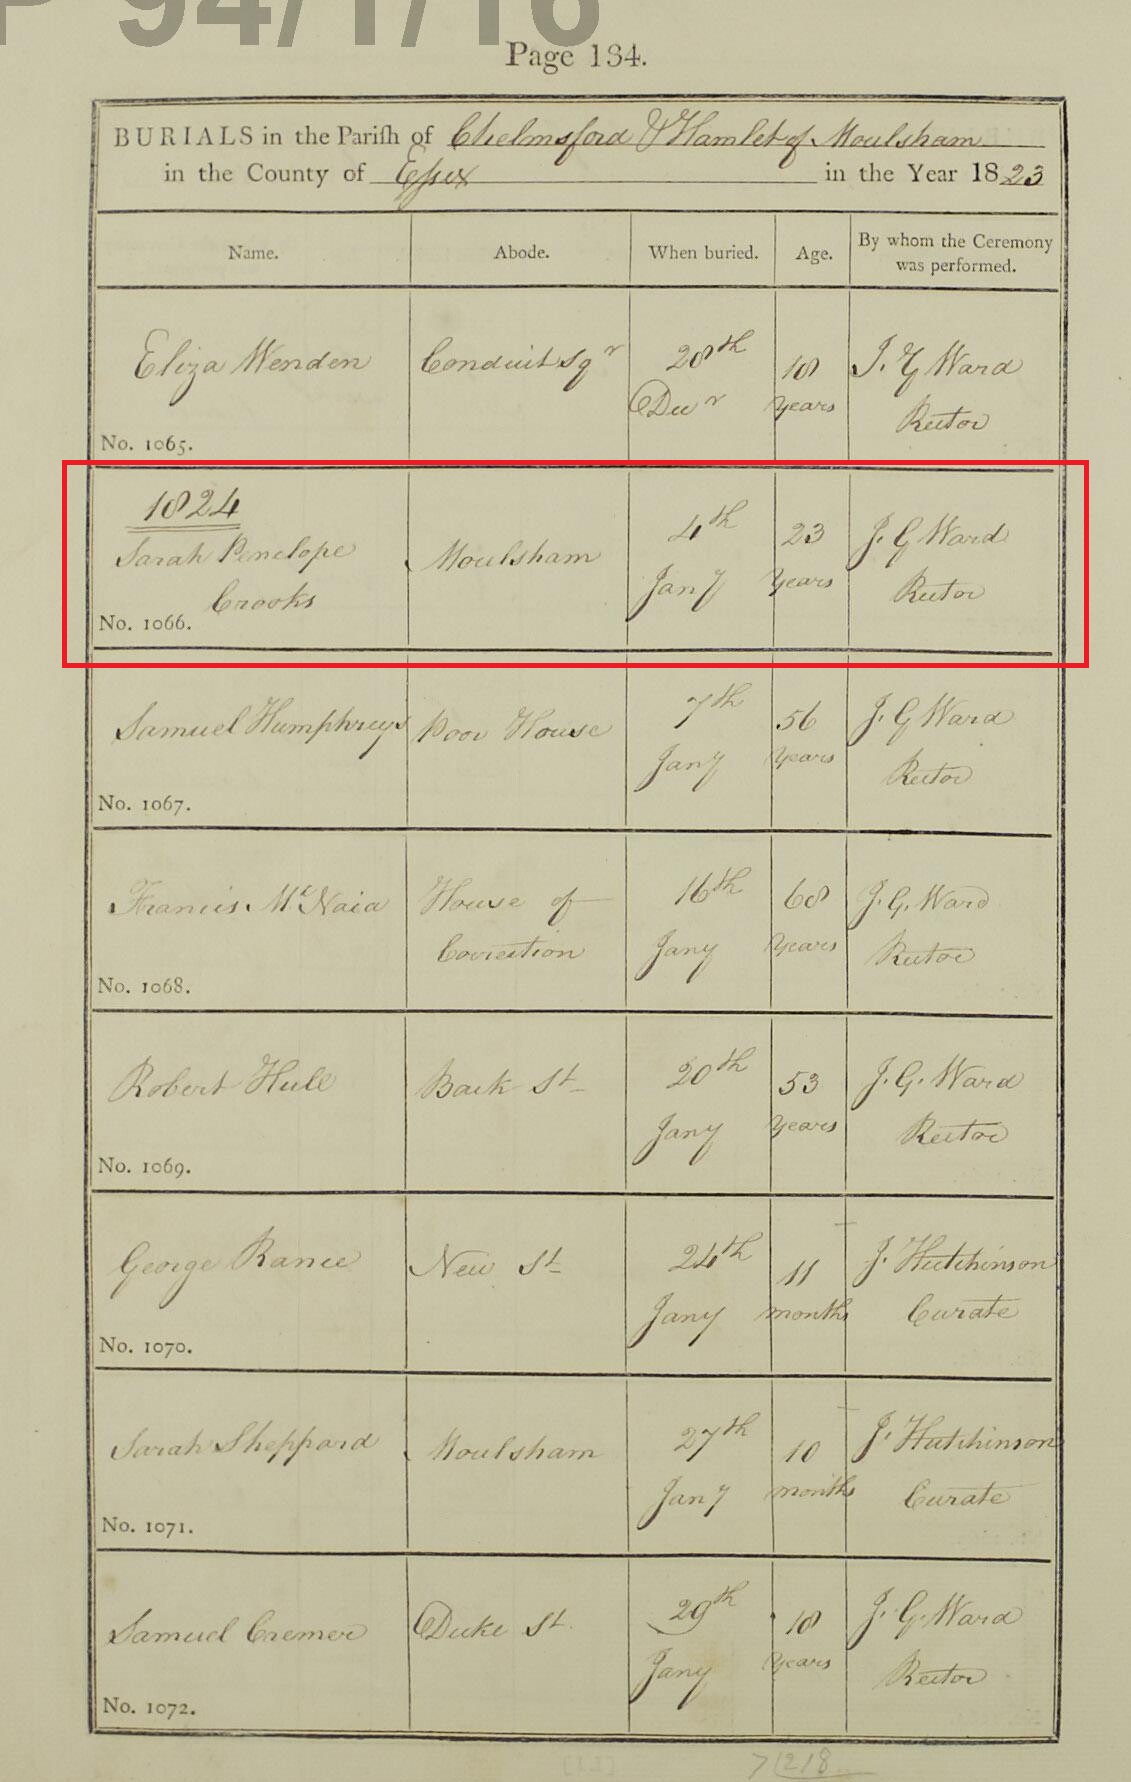 P 94/1/16
Page 134.
BURIALS in the Parish of Chelmsford & Hamlet of Moulsham
in the County of Essex in the Year 1823
Name. Abode. When buried. Age. By whom the Ceremony was performed.
Eliza Wenden Conduit Sqr 28th 18 J. G Ward
Decr Years Rector
No. 1065.
1824
Sarah Penelope Moulsham 4th 23 J. G Ward
Crooks Jany Years Rector
No. 1066.
Samuel Humphreys Poor House 7th 56 J. G Ward
Jany Years Rector
No. 1067.
Francis McNaia House of 16th 68 J. G. Ward
Correction Jany Years Rector
No. 1068.
Robert Hull Back St 20th 53 J. G. Ward
Jany Years Rector
No. 1069.
George Rance New St 24th 11 J. Hutchinson
Jany months Curate
No. 1070.
Sarah Sheppard Moulsham 27th 10 J. Hutchinson
Jany months Curate
No. 1071.
Samuel Cremer Duke St. 29th 18 J. G. Ward
Jany Years Rector
No. 1072.